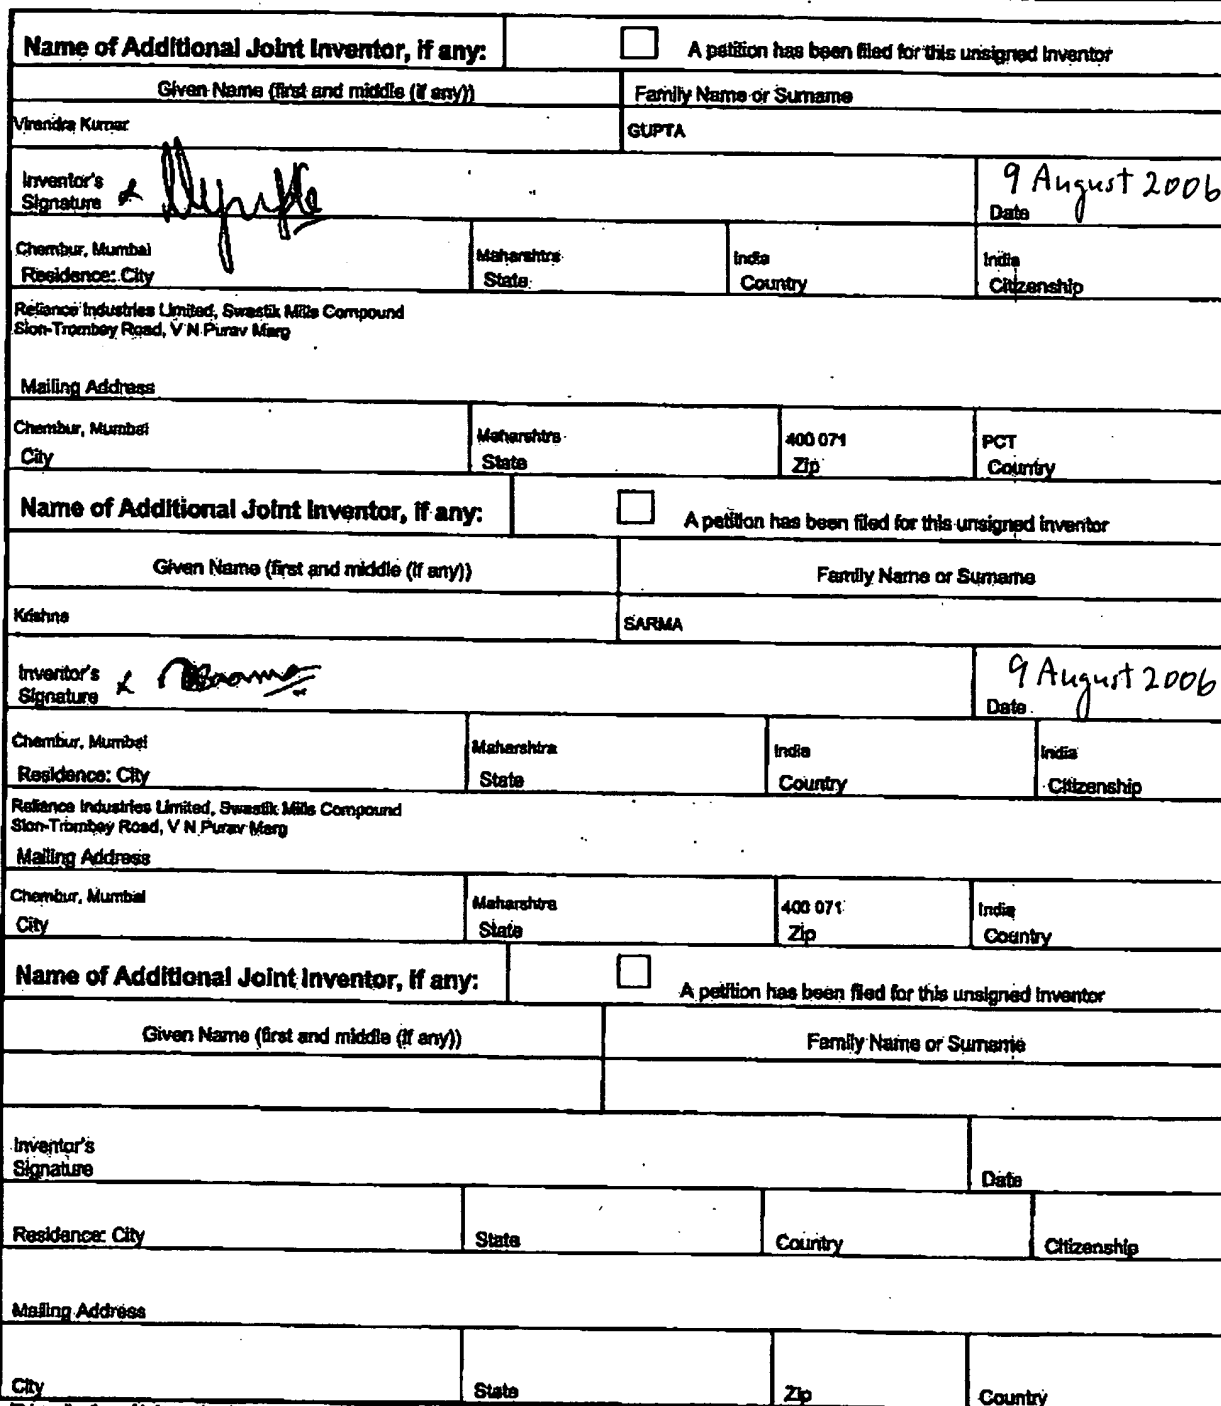 Name of Additional Joint Inventor, if any: A petition has been filed for this unsigned inventor
Given Name (first and middle (if any)) Family Name or Surname
Virendra Kumar GUPTA
Inventor's 9 August 2006
Signature Date
Chembur, Mumbai Maharashtra India India
Residence: City State Country Citizenship
Reliance Industries Limited, Swastik Mills Compound
Sion-Trombay Road, V N Purav Marg
Mailing Address
Chembur, Mumbai Maharashtra 400 071 PCT
City State Zip Country
Name of Additional Joint Inventor, if any: A petition has been filed for this unsigned inventor
Given Name (first and middle (if any)) Family Name or Surname
Krishna SARMA
Inventor's 9 August 2006
Signature Date
Chembur, Mumbai Maharashtra India India
Residence: City State Country Citizenship
Reliance Industries Limited, Swastik Mills Compound
Sion-Trombay Road, V N Purav Marg
Mailing Address
Chembur, Mumbai Maharashtra 400 071 India
City State Zip Country
Name of Additional Joint Inventor, if any: A petition has been filed for this unsigned inventor
Given Name (first and middle (if any)) Family Name or Surname
Inventor's
Signature Date
Residence: City State Country Citizenship
Mailing Address
City State Zip Country